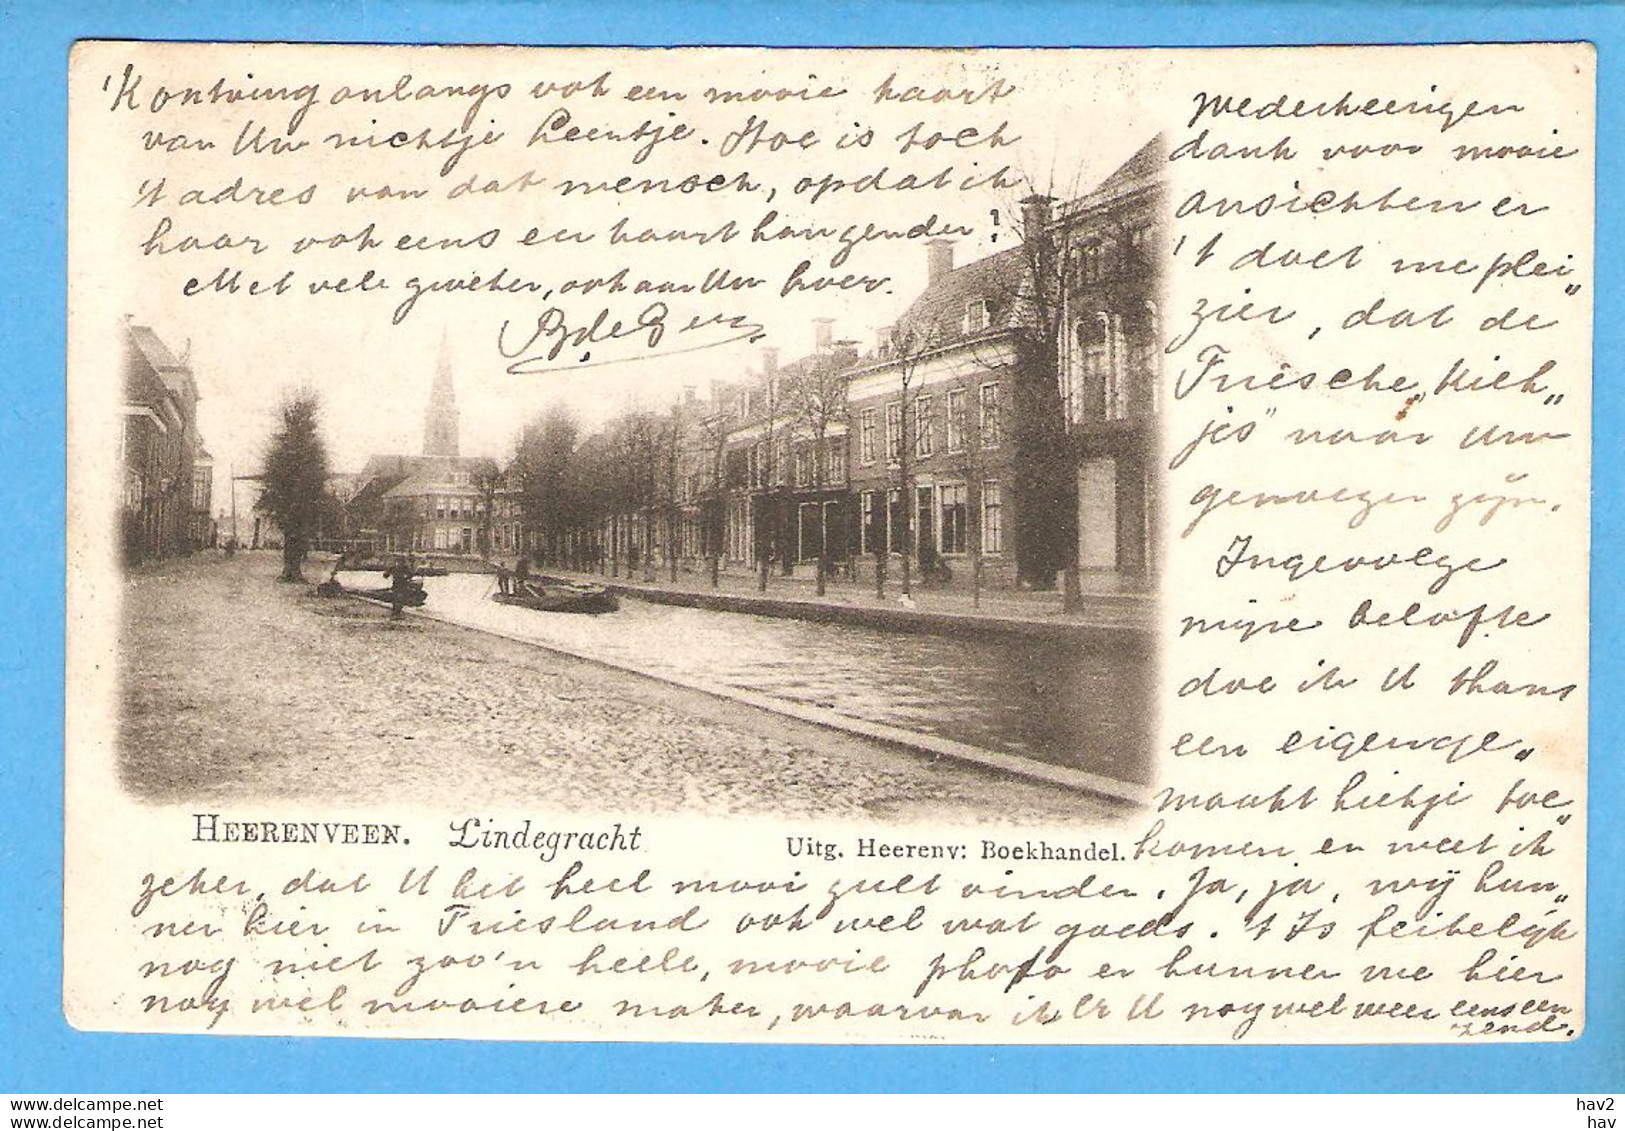 'K ontving onlangs ook een mooie kaart
van Uw nichtje Leentje. Hoe is toch
't adres van dat mensch, opdat ik
haar ook eens een kaart kan zenden?
Met vele groeten, ook aan Uw broer.
Wederkeerigen
dank voor mooie
ansichten en
't doet me plei„
zier, dat de
Friesche „Kiek„
jes" naar Uw
genoegen zijn.
Ingevolge
mijne belofte
doe ik U thans
een eigenge„
maakt kiekje toe„
komen en weet ik
HEERENVEEN. Lindegracht
Uitg. Heerenv: Boekhandel.
zeker, dat U het heel mooi zult vinden. Ja, ja, wij kun„
nen hier in Friesland ook wel wat goeds. 't Is feitelijk
nog niet zoo'n heele, mooie photo en kunnen we hier
nog wel mooiere maken, waarvan ik er U nog wel weer eens een
zend.
hav2
www.delcampe.net
hav